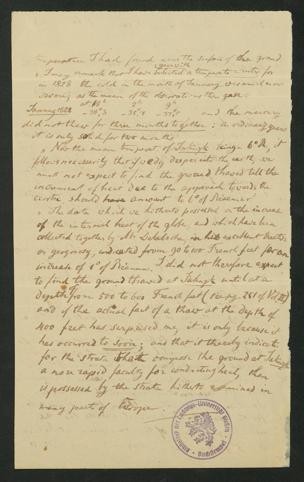 temperature I had found near the surface of the ground
I may remark that I have selected a temperate winter for
in 1828 the cold in the month of January was
as the mean of the observations there gave
January 1828 at 18h 2h 9h
and the mercury
did not thaw for three months together; in ordinary years
it is only solid for two months
Now the mean temperat of Jakuzk being 6° R, it
follows necessarily that if we dig deeper into the earth, we
must not expect to find the ground thawed till the
increment of heat due to the approach towards the
centre should have amount to 6° of Reaumur.
The data which we hitherto possessed on the increase
of the internal heat of the globe and which have been
collected together by in his excellent Treatise
on geognosy, indicated from 90 to 100 French feet for an
increase of 1° of Reaumur. I did not therefore expect
to find the ground thawed at Jakuzk until at a
depth from 500 to 600 French feet
and if the actual fact of a thaw at the depth of
400 feet has surprised me, it is only because it
has occurred so soon; and that it thereby indicates
for the strata which compose the ground at Jakuzk
a more rapid faculty for conducting heat, than
is possessed by the strata hitherto examined in
many parts of Europe.